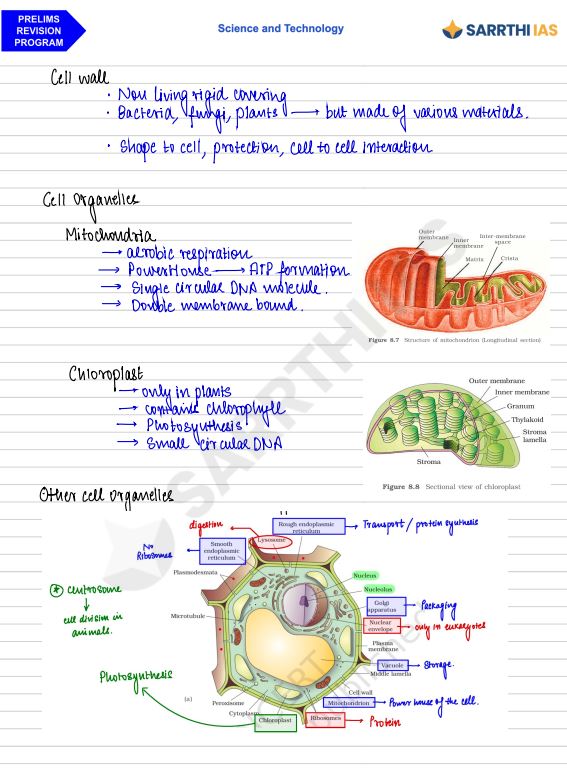 PRELIMS
REVISION
PROGRAM
Science and Technology
SARRTHI IAS
Cell wall
• Non living rigid covering
• Bacteria, fungi, plants → but made of various materials.
• Shape to cell, protection, cell to cell interaction
Cell Organelles
Mitochondria
→ aerobic respiration
→ PowerHouse → ATP formation
→ Single circular DNA molecule.
→ Double membrane bound.
Outer
membrane
Inner
membrane
Inter-membrane
space
Matrix
Crista
Figure 8.7 Structure of mitochondrion (Longitudinal section)
Chloroplast
→ only in plants
→ contains chlorophyll
→ Photosynthesis
→ Small circular DNA
Outer membrane
Inner membrane
Granum
Thylakoid
Stroma
lamella
Stroma
Figure 8.8 Sectional view of chloroplast
Other cell organelles
digestion
Lysosome
Rough endoplasmic
reticulum
Transport / protein synthesis
No
Ribosomes
Smooth
endoplasmic
reticulum
Plasmodesmata
Nucleus
Nucleolus
* Centrosome
cell division in
animals.
Golgi
apparatus
Packaging
Microtubule
Nuclear
envelope
only in eukaryotes
Plasma
membrane
Vacuole
Storage.
Middle lamella
Photosynthesis
Cell wall
(a)
Peroxisome
Mitochondrion
Power house of the cell.
Cytoplasm
Chloroplast
Ribosomes
Protein
SARRTHI IAS